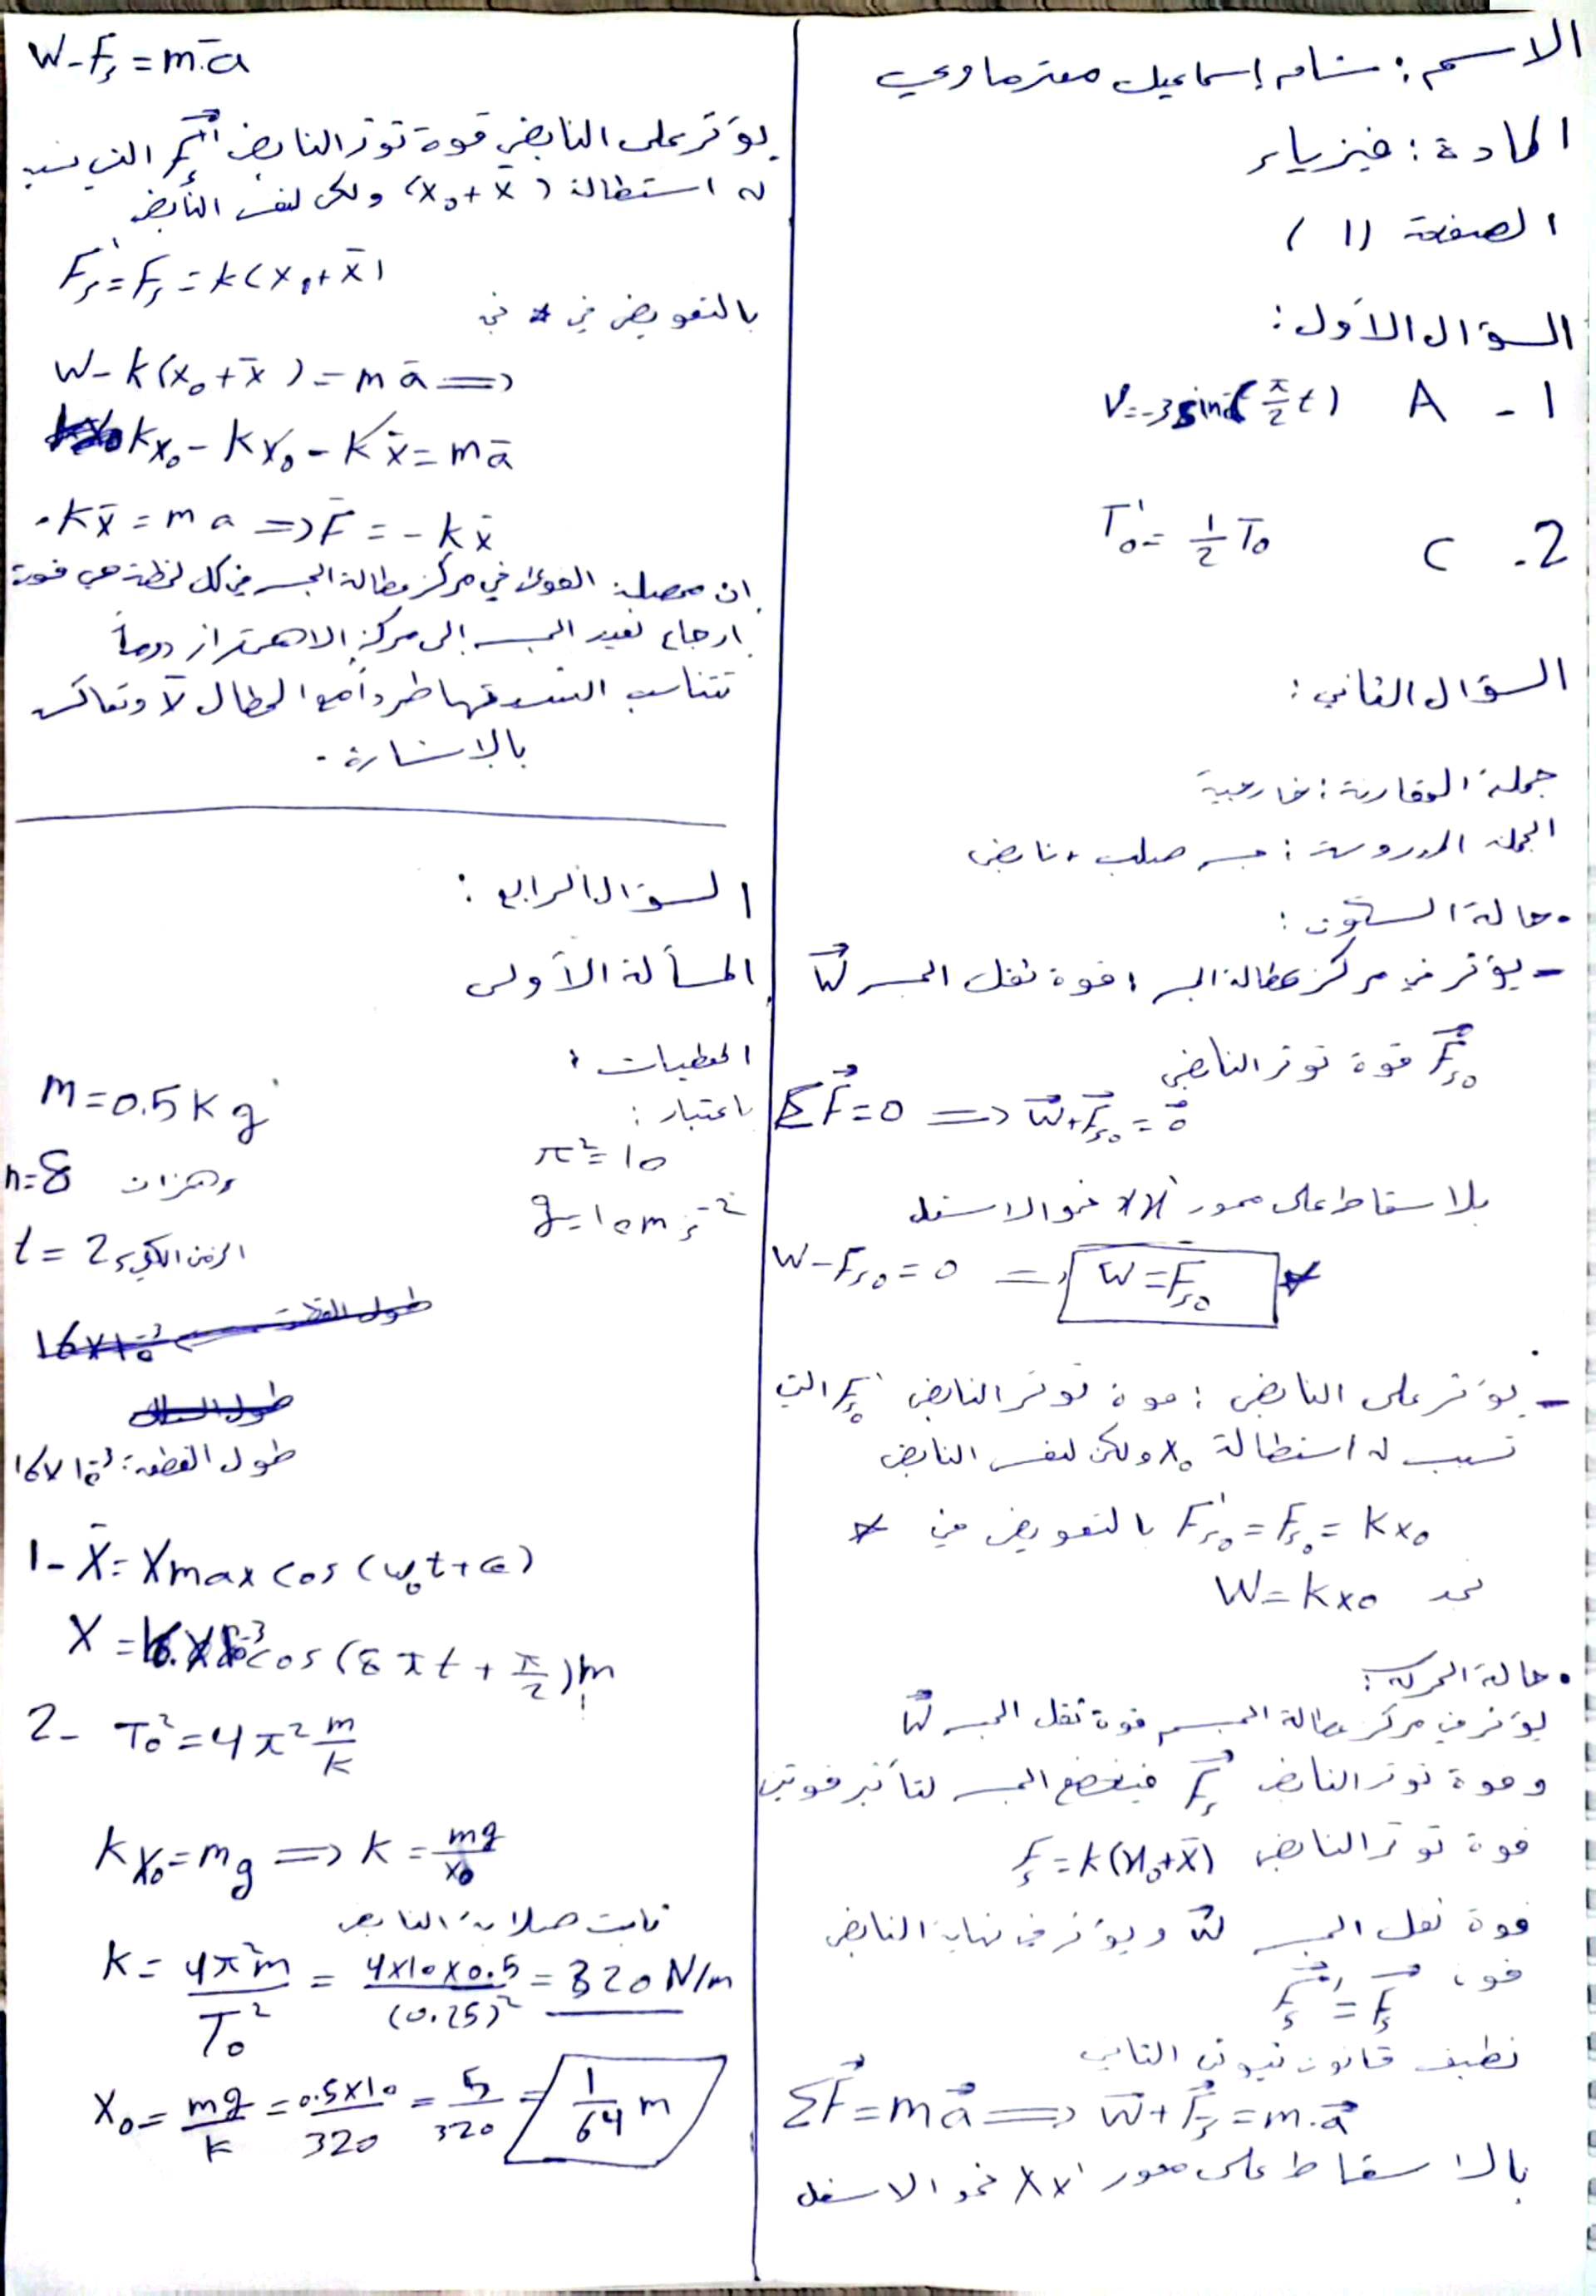 الاسم: شام إسماعيل معترماوي
المادة: فيزياء
الصفحة (1)
السؤال الأول:
1 - A v=-3sin(π/2 t)
2. C T₀' = 1/2 T₀
السؤال الثاني:
جملة المقارنة: خارجية
الجملة المدروسة: جسم صلب، نابض
• حالة السكون:
- يؤثر في مركز عطالة الجسم: قوة ثقل الجسم W⃗
F⃗s₀ قوة توتر النابض
ΣF⃗=0 ⟹ W⃗+F⃗s₀=0⃗
بالاسقاط على محور xx' نحو الاسفل
W-Fs₀=0 ⟹ W=Fs₀ *
- يؤثر على النابض: قوة توتر النابض F's₀ التي
تسبب له استطالة x₀ ولكن لنفس النابض
F's₀=Fs₀=kx₀ بالتعويض في *
نجد W=kx₀
• حالة الحركة:
يؤثر في مركز عطالة الجسم قوة ثقل الجسم W⃗
وقوة توتر النابض F⃗s فيخضع الجسم لتأثير قوتين
قوة توتر النابض Fs=k(x₀+x̄)
قوة ثقل الجسم W⃗ ويؤثر في نهاية النابض
قوة F⃗s'=F⃗s
نطبق قانون نيوتن الثاني
ΣF⃗=ma⃗ ⟹ W⃗+F⃗s=m.a⃗
بالاسقاط على محور xx' نحو الاسفل
W-Fs=m.ā
يؤثر على النابض قوة توتر النابض F⃗s' التي تسبب
له استطالة (x₀+x̄) ولكن لنفس النابض
Fs'=Fs=k(x₀+x̄)
بالتعويض في *
W-k(x₀+x̄)=mā ⟹
kx₀-kx₀-kx̄=mā
-kx̄=ma ⟹ F̄=-kx̄
ان محصلة القوى في مركز عطالة الجسم في كل لحظة هي قوة
ارجاع تعيد الجسم إلى مركز الاهتزاز دوماً
تتناسب الشدة طرداً مع المطال x̄ وتعاكسه
بالاشارة.
السؤال الرابع:
المسألة الأولى
المعطيات:
m=0.5kg باعتبار:
n=8 هزات π²=10
t=2s الزمن الكلي g=10m.s⁻²
طول القطعة: 16×10⁻³
1- x̄=Xmax cos(ω₀t+φ)
X= cos(8πt+π/2)m
2- T₀²=4π² m/k
kx₀=mg ⟹ k=mg/x₀
ثابت صلابة النابض
k=4π²m/T₀²=4×10×0.5/(0.25)²=320N/m
x₀=mg/k=0.5×10/320=5/320=1/64 m